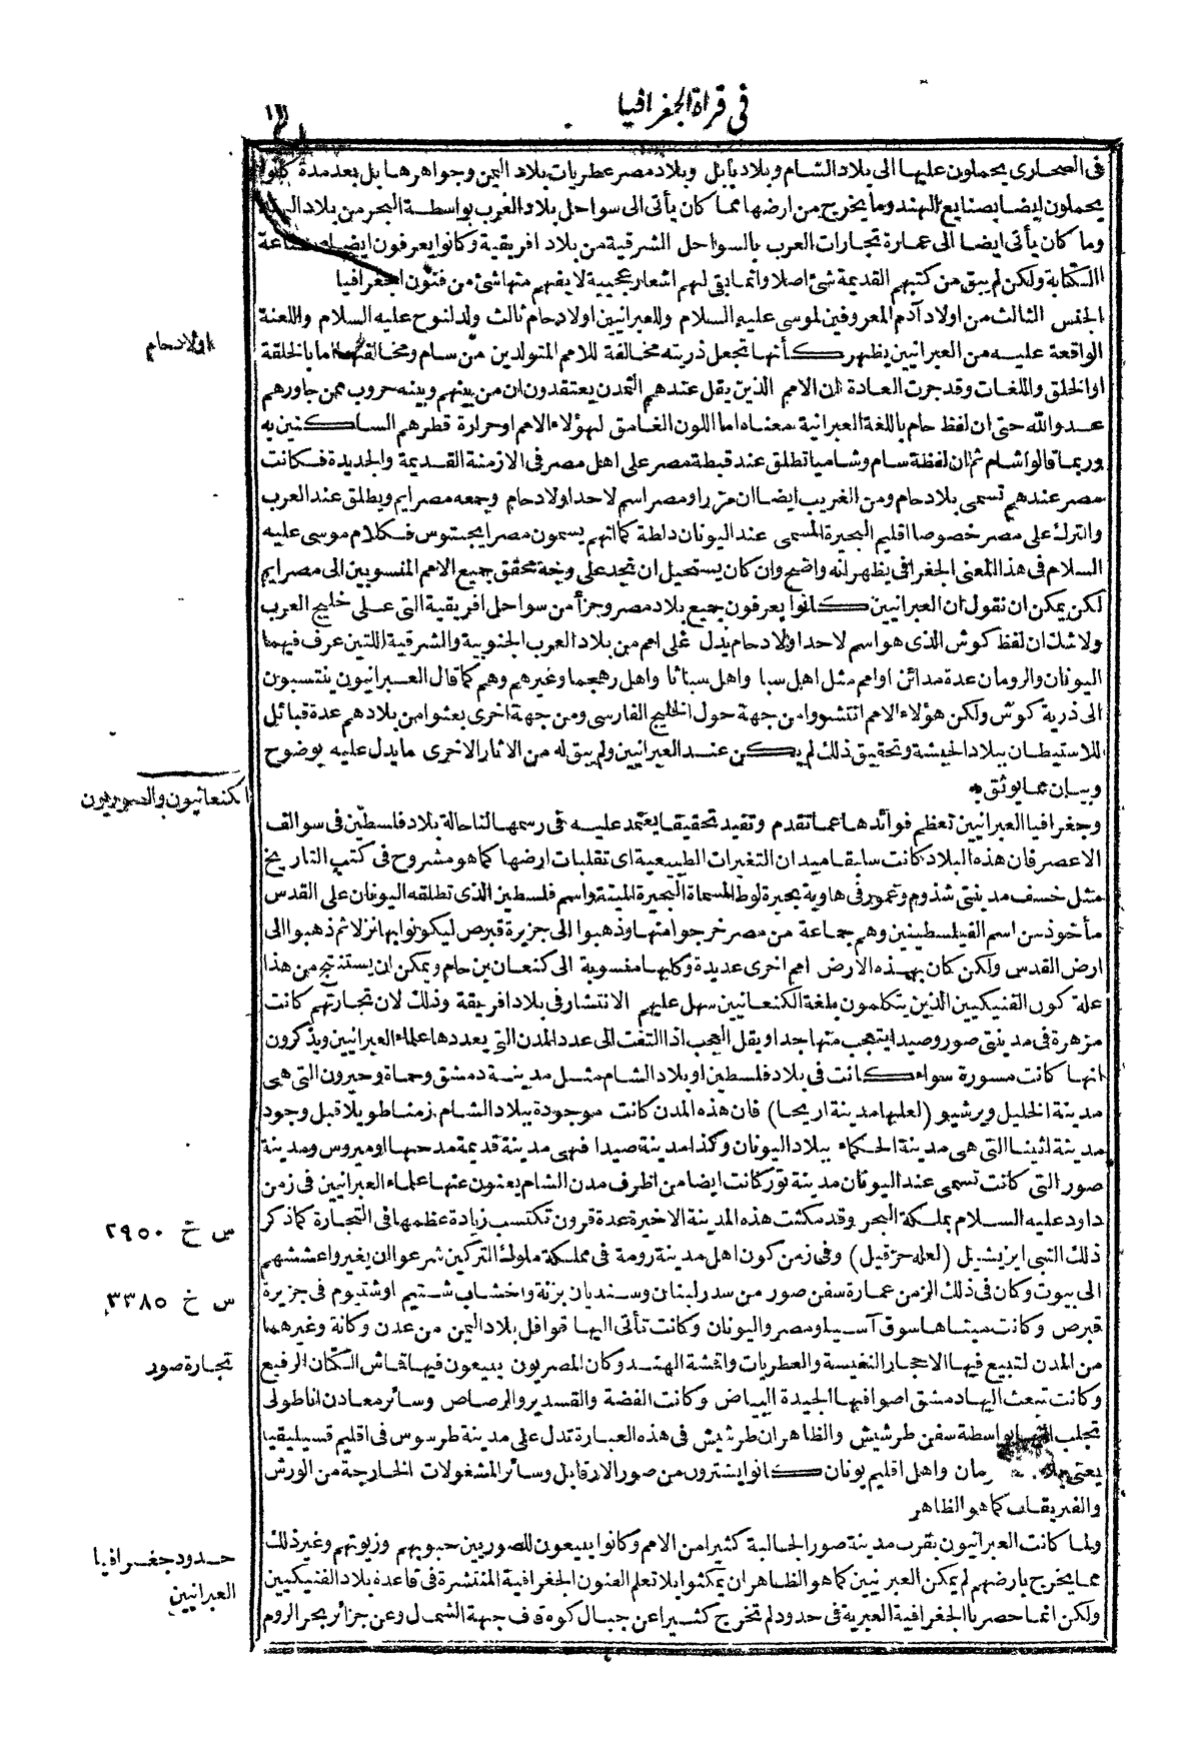 في قراة الجغرافيا
في الصحارى يحملون عليها الى بلاد الشام وبلاد بابل وبلاد مصر عطريات بلاد اليمن وجواهرها بل بعد مدة كانوا
يحملون ايضا بصنايع الهند وما يخرج من ارضها مما كان يأتى الى سواحل بلاد الغرب بواسطة البحر من بلاد
وما كان يأتى ايضا الى عمارة تجارات العرب بالسواحل الشرقية من بلاد افريقية وكانوا يعرفون ايضا
الكتابة ولكن لم يبق من كتبهم القديمة شئ اصلا وانما بقى لهم اشعار عجيبة لا يفهم منها شئ من فنون الجغرافيا
الجنس الثالث من اولاد آدم المعروفين لموسى عليه السلام وللعبرانيين اولاد حام ثالث ولد لنوح عليه السلام واللعنة
اولاد حام
الواقعة عليه من العبرانيين يظهر كأنها تجعل ذريته مخالفة للامم المتولدين من سام ومخالفتها اما بالخلقة
او الخلق واللغات وقد جرت العادة ان الامم الذين يقل عندهم التمدن يعتقدون ان من بينهم وبينه حروب ممن جاورهم
عدو الله حتى ان لفظ حام باللغة العبرانية معناه اما اللون الغامق لهؤلاء الامم او حرارة قطرهم الساكنين به
وربما قالوا شام ثم ان لفظة سام وشاميا تطلق عند قبطة مصر على اهل مصر فى الازمنة القديمة والجديدة فكانت
مصر عندهم تسمى بلاد حام ومن الغريب ايضا ان مزرا ومصر اسم لاحد اولاد حام وجمعه مصرايم ويطلق عند العرب
والترك على مصر خصوصا اقليم البحيرة المسمى عند اليونان دلطة كما انهم يسمون مصر ايجبتوس فكلام موسى عليه
السلام فى هذا المعنى الجغرافى يظهر انه واضح وان كان يستحيل ان تجد على وجه محقق جميع الامم المنسوبين الى مصرايم
لكن يمكن ان نقول ان العبرانيين كانوا يعرفون جميع بلاد مصر وجزأ من سواحل افريقية التى على خليج العرب
ولا شك ان لفظ كوش الذى هو اسم لاحد اولاد حام يدل على امم من بلاد العرب الجنوبية والشرقية اللتين عرف فيهما
اليونان والرومان عدة مدائن او امم مثل اهل سبا واهل سباثا واهل رهجما وغيرهم وهم كما قال العبرانيون ينتسبون
الى ذرية كوش ولكن هؤلاء الامم انتشوا من جهة حول الخليج الفارسى ومن جهة اخرى بعثوا من بلادهم عدة قبائل
للاستيطان ببلاد الحبشة وتحقيق ذلك لم يكن عند العبرانيين ولم يبق له من الاثار الاخرى ما يدل عليه بوضوح
وبيان مما يوثق به
الكنعانيون والصوريون
وجغرافيا العبرانيين تعظم فوائدها عما تقدم وتفيد تحقيقا يعتمد عليه فى رسمها لنا حالة بلاد فلسطين فى سوالف
الاعصر فان هذه البلاد كانت سابقا ميدان التغيرات الطبيعية اى تقلبات ارضها كما هو مشروح فى كتب التاريخ
مثل خسف مدينتى شذوم وعمور فى هاوية بحيرة لوط المسماة البحيرة الميتة واسم فلسطين الذى تطلقه اليونان على القدس
مأخوذ من اسم الفيلسطينين وهم جماعة من مصر خرجوا منها وذهبوا الى جزيرة قبرص ليكونوا بها نزلا ثم ذهبوا الى
ارض القدس ولكن كان بهذه الارض امم اخرى عديدة وكلها منسوبة الى كنعان بن حام ويمكن ان يستنتج من هذا
علة كون الفنيكيين الذين يتكلمون بلغة الكنعانيين سهل عليهم الانتشار فى بلاد افريقة وذلك لان تجارتهم كانت
مزهرة فى مدينتى صور وصيدا يتعجب منها جدا ويقل العجب اذا التفت الى عدد المدن التى يعددها علماء العبرانيين ويذكرون
انها كانت مسورة سواء كانت فى بلاد فلسطين او بلاد الشام مثل مدينة دمشق وحماة وحبرون التى هى
مدينة الخليل ويرشيو (لعلها مدينة اريحا) فان هذه المدن كانت موجودة ببلاد الشام زمنا طويلا قبل وجود
مدينة اثينا التى هى مدينة الحكماء ببلاد اليونان وكذا مدينة صيدا فهى مدينة قديمة مدحها اوميروس ومدينة
صور التى كانت تسمى عند اليونان مدينة تور كانت ايضا من اظرف مدن الشام يعنون عنها علماء العبرانيين فى زمن
داود عليه السلام بملكة البحر وقد مكثت هذه المدينة الاخيرة عدة قرون تكتسب زيادة عظمها فى التجارة كما ذكر
س خ ٢٩٥٠
ذلك النبى ايزيشيل (لعله حزقيل) وفى زمن كون اهل مدينة رومة فى مملكة ملوك التركين شرعوا ان يغيروا عششهم
الى بيوت وكان فى ذلك الزمن عمارة سفن صور من سدر لبنان وسنديان بزنة واخشاب شتيم اوشتيوم فى جزيرة
س خ ٣٣٨٥
قبرص وكانت ميناها سوق آسيا ومصر واليونان وكانت تأتى اليها قوافل بلاد اليمن من عدن وكانة وغيرهما
من المدن لتبيع فيها الاحجار النفيسة والعطريات واقمشة الهند وكان المصريون يبيعون فيها قماش الكتان الرفيع
تجارة صور
وكانت تبعث اليها دمشق اصوافها الجيدة البياض وكانت الفضة والقسدير والرصاص وسائر معادن اناطولى
تجلب اليها بواسطة سفن طرشيش والظاهر ان طرشيش فى هذه العبارة تدل على مدينة طرسوس فى اقليم قسيليقيا
يعنى رمان واهل اقليم يونان كانوا يشترون من صور الارقا بل وسائر المشغولات الخارجة من الورش
والفبريقات كما هو الظاهر
ولما كانت العبرانيون بقرب مدينة صور الجالبة كثيرا من الامم وكانوا يبيعون للصوريين حبوبهم وزيوتهم وغير ذلك
حدود جغرافيا
مما يخرج بارضهم لم يمكن العبرنيين كما هو الظاهر ان يمكثوا بلا تعلم الفنون الجغرافية المنتشرة فى قاعدة بلاد الفنيكيين
العبرانيين
ولكن انما حصروا الجغرافية العبرية فى حدود لم تخرج كثيرا عن جبال كوه قاف جهة الشمال وعن جزائر بحر الروم